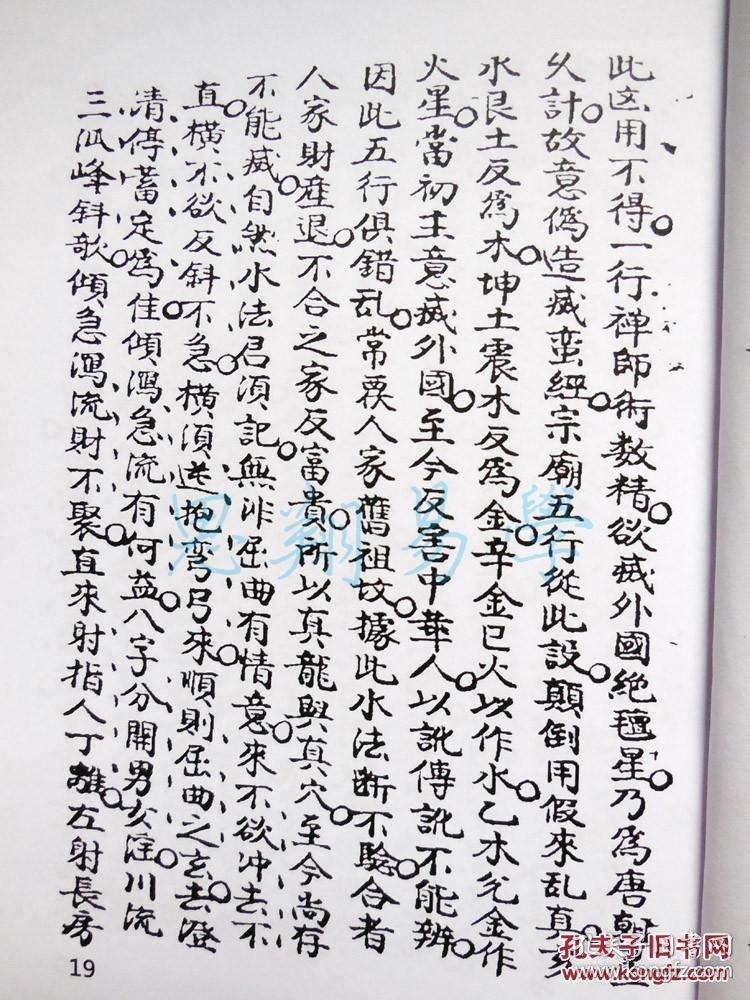 此这用不得一行禅師術数精欲威外國绝𤩊星乃為唐朝
久計故意僞造威蛮經宗廟五行從此設顛倒用假來乱真亥
水艮土反爲木坤土震木反爲金辛金巳火以作水乙木兌金作
火星當初主意威外國至今反害中華人以訛傳訛不能辨
因此五行俱錯乱常覆人家舊祖坟據此水法断不驗合者
人家財產退不合之家反富貴所以真龍與真穴至今尚存
不能威自然水法君須記無非屈曲有情意來不欲冲去不
直横不欲反斜不急横須遶抱彎弓來順則屈曲之玄去澄
清停蓄定爲佳傾瀉急流有何益八字分開男女淫川流
三瓜峰斜欹傾急瀉流財不聚直來射指人丁離左射長房
19
思翔易學
孔夫子旧书网
www.kongfz.com